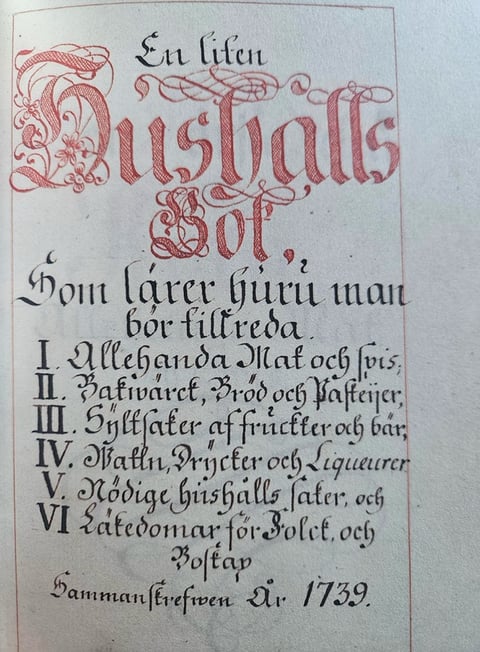 En liten
Hushålls
Bok,
Som lärer huru man
bör tillreda.
I. Allehanda Mat och spis,
II. Bakwärck, Bröd och Pasteijer,
III. Syltsaker af fruckter och bär,
IV. Watn, Drÿcker och Liqueurer
V. Nödige hushålls saker, och
VI Läkedomar för Folck, och
Boskap
Sammanskrefwen År 1739.